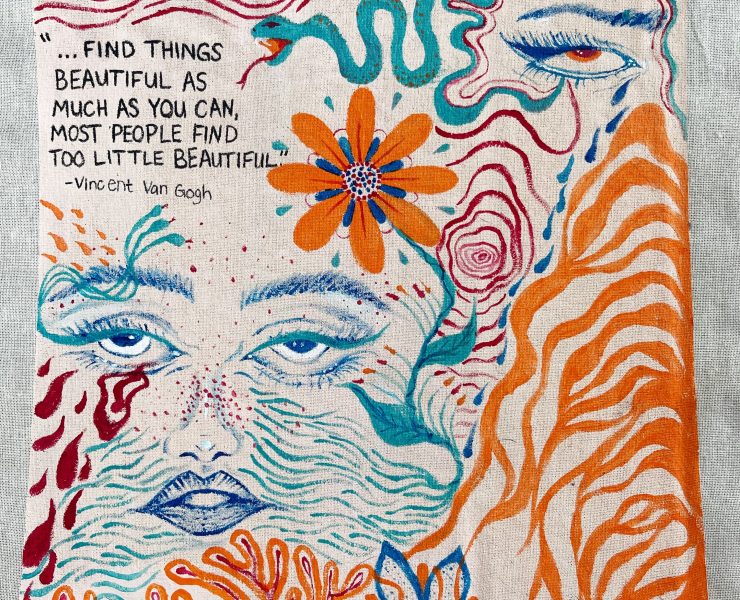 "...FIND THINGS
BEAUTIFUL AS
MUCH AS YOU CAN,
MOST PEOPLE FIND
TOO LITTLE BEAUTIFUL."
-Vincent Van Gogh